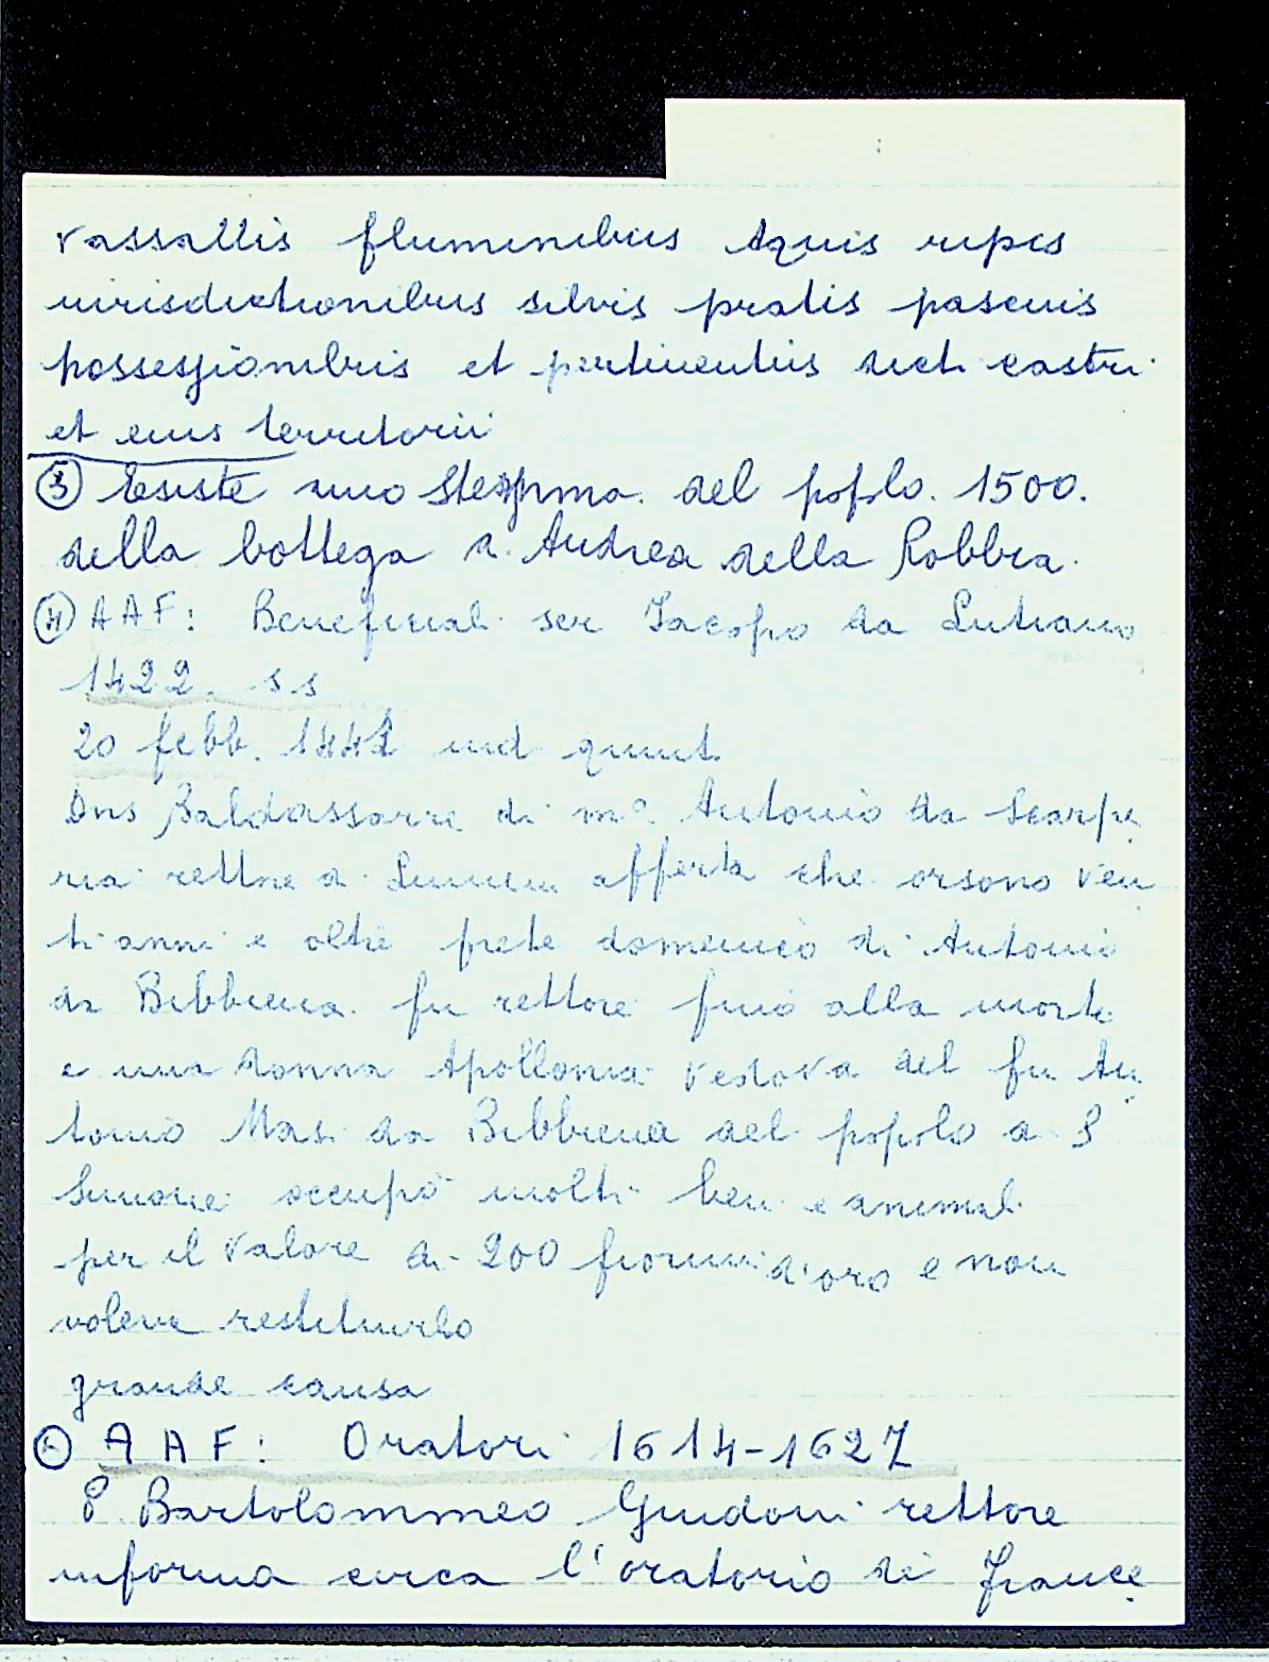 vassallis fluminibus Aquis ripis
iurisdictionibus silvis pratis pascuis
possessionibus et pertinentiis dicti castri
et eius territorii
③ Esiste uno Stemma del popolo 1500.
della bottega di Andrea della Robbia.
④ AAF: Beneficiali ser Iacopo da Lutiano
1422. s.s
20 febb. 1441 ind quint.
Dns Baldassarre di m° Antonio da Scarpe
ria rettore a afferta che orsono ven
ti anni e oltre prete domenico di Antonio
da Bibbiena fu rettore fino alla morte
e una donna Apollonia vedova del fu An
tonio Masi da Bibbiena del popolo di S
Simone occupò molti beni e animali
per il valore di 200 fiorini d'oro e non
voleva restituirlo
grande causa
AAF: Oratori 1614-1627
P Bartolommeo Guidoni rettore
informa circa l'oratorio di France